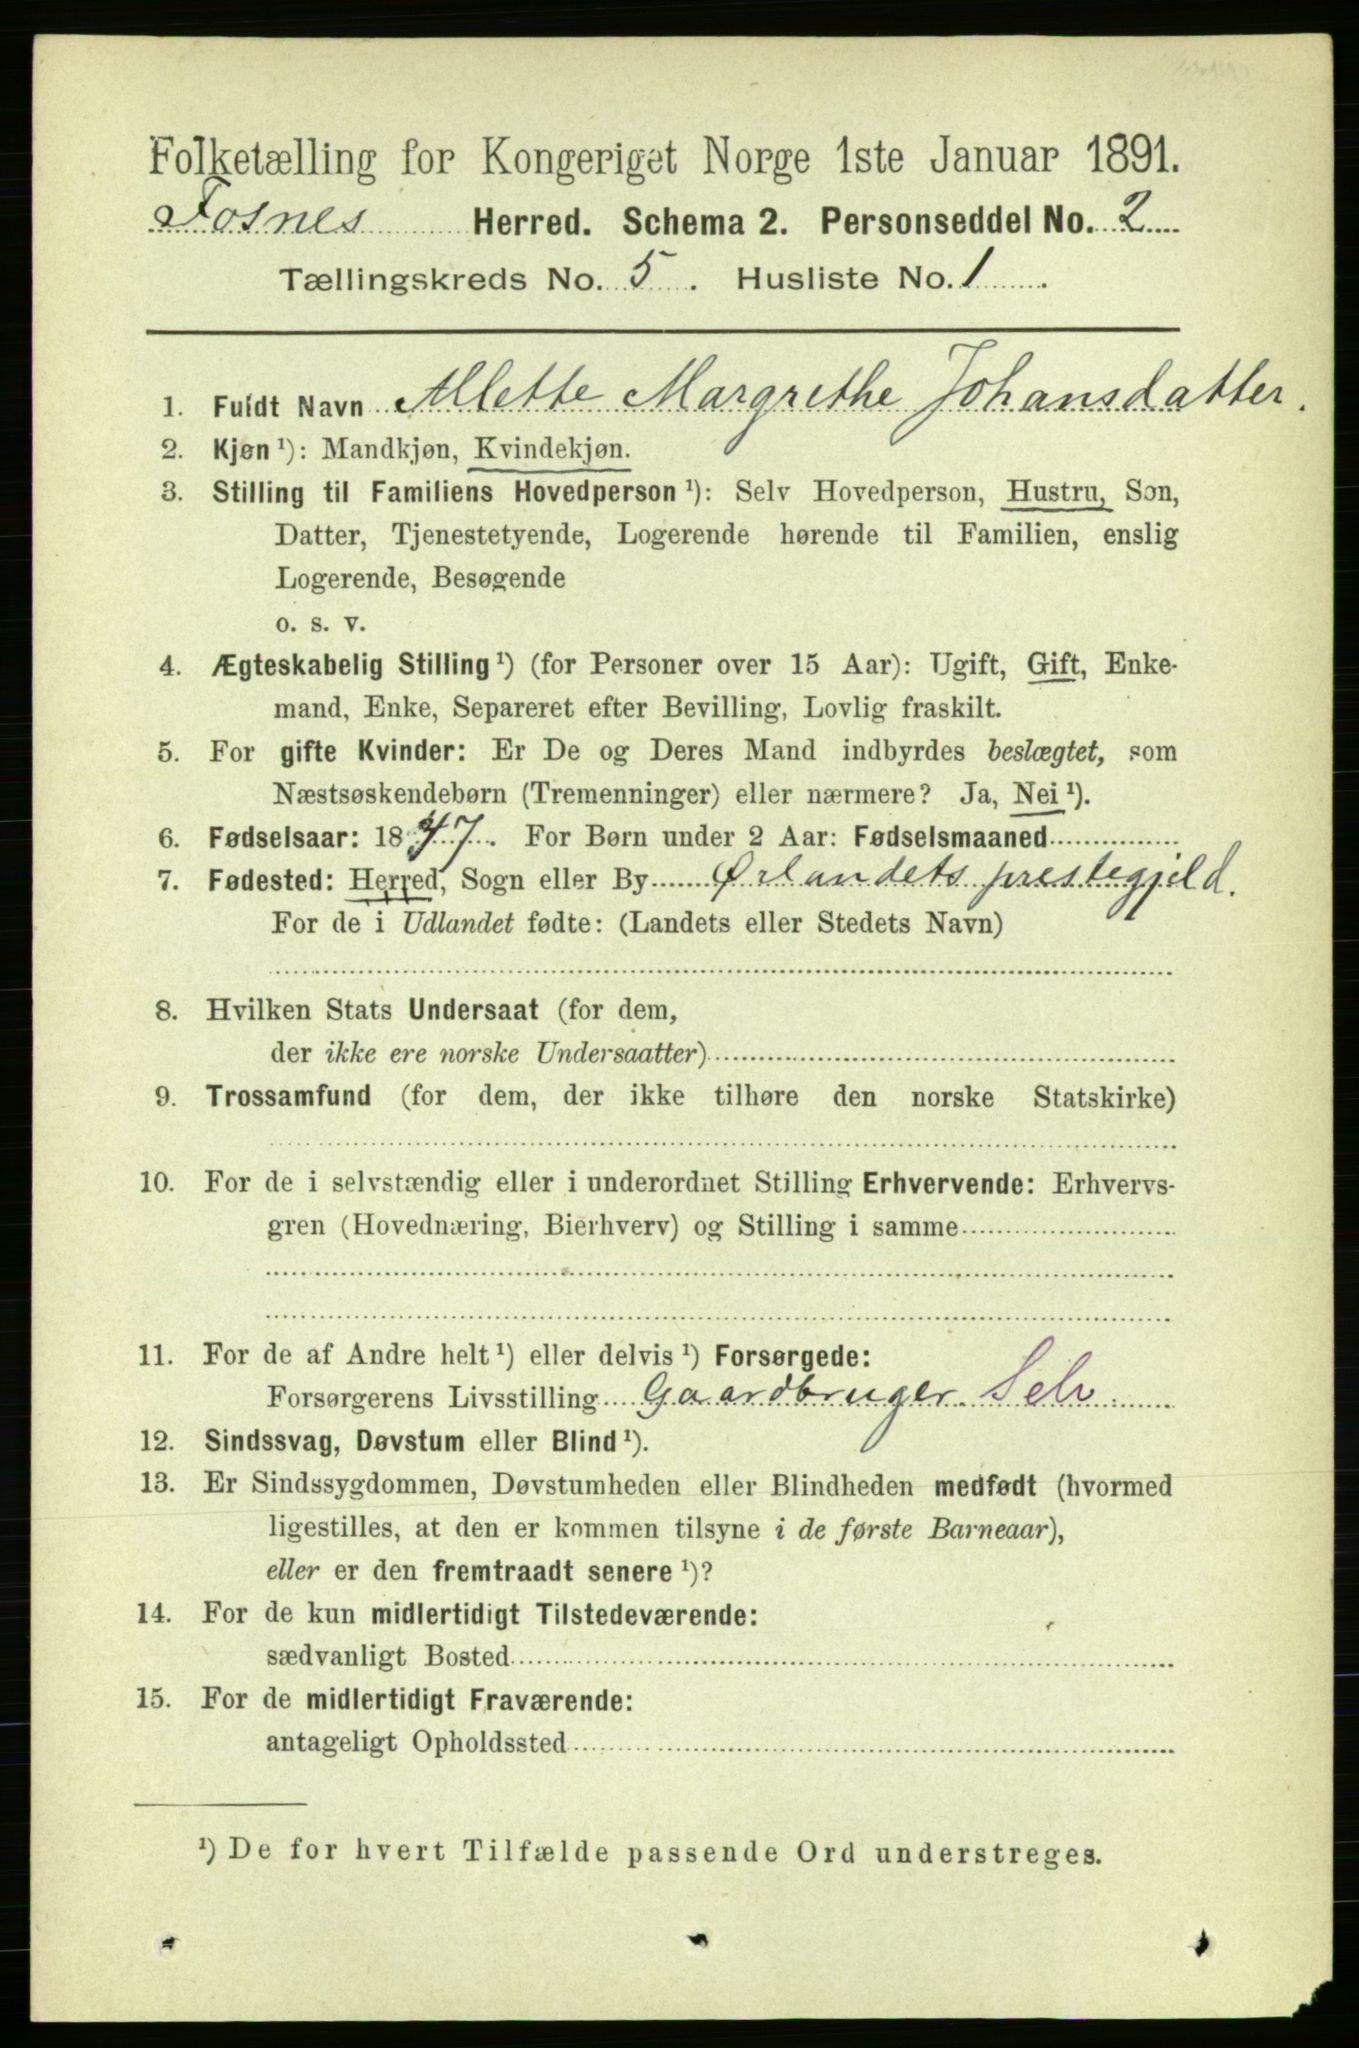 Folketælling for Kongeriget Norge 1ste Januar 1891.
Fosnes Herred. Schema 2. Personseddel No. 2
Tællingskreds No. 5. Husliste No. 1.
1. Fuldt Navn Allette Margrethe Johansdatter.
2. Kjøn ¹): Mandkjøn, Kvindekjøn.
3. Stilling til Familiens Hovedperson ¹): Selv Hovedperson, Hustru, Søn,
Datter, Tjenestetyende, Logerende hørende til Familien, enslig
Logerende, Besøgende
o. s. v.
4. Ægteskabelig Stilling ¹) (for Personer over 15 Aar): Ugift, Gift, Enke-
mand, Enke, Separeret efter Bevilling, Lovlig fraskilt.
5. For gifte Kvinder: Er De og Deres Mand indbyrdes beslægtet, som
Næstsøskendebørn (Tremenninger) eller nærmere? Ja, Nei ¹).
6. Fødselsaar: 1847. For Børn under 2 Aar: Fødselsmaaned
7. Fødested: Herred, Sogn eller By Ørlandets prestegjeld.
For de i Udlandet fødte: (Landets eller Stedets Navn)
8. Hvilken Stats Undersaat (for dem,
der ikke ere norske Undersaatter)
9. Trossamfund (for dem, der ikke tilhøre den norske Statskirke)
10. For de i selvstændig eller i underordnet Stilling Erhvervende: Erhvervs-
gren (Hovednæring, Bierhverv) og Stilling i samme
11. For de af Andre helt ¹) eller delvis ¹) Forsørgede:
Forsørgerens Livsstilling Gaardbruger. Selv.
12. Sindssvag, Døvstum eller Blind ¹).
13. Er Sindssygdommen, Døvstumheden eller Blindheden medfødt (hvormed
ligestilles, at den er kommen tilsyne i de første Barneaar),
eller er den fremtraadt senere ¹)?
14. For de kun midlertidigt Tilstedeværende:
sædvanligt Bosted
15. For de midlertidigt Fraværende:
antageligt Opholdssted
¹) De for hvert Tilfælde passende Ord understreges.